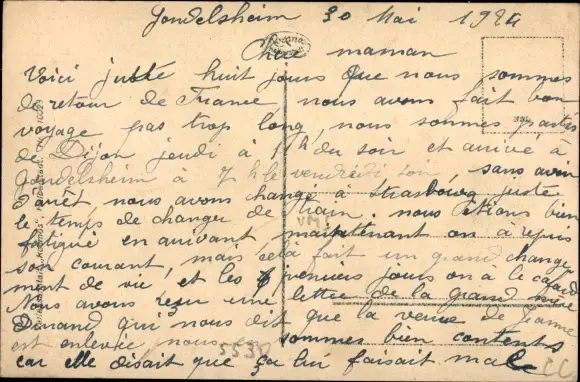 Gondelsheim 30 Mai 1924
Chère maman
Voici juste huit jours que nous sommes
de retour de France, nous avons fait bon
voyage pas trop long, nous sommes partis
de Dijon jeudi à du soir et arrivé à
Gondelsheim à 7 h le vendredi soir, sans avoir
d'arrêt, nous avons changé à Strasbourg juste
le temps de changer de train. nous étions bien
fatigué en arrivant, maintenant on a repris
son courant, mais sela fait un grand change
ment de vie, et les premiers jours on a le cafard
Nous avons reçu une lettre de la grand mère
Durand qui nous dit que la verue de Jeanne
est enlevée nous sommes bien contents
car elle disait que ça lui faisait mal
5539
CC